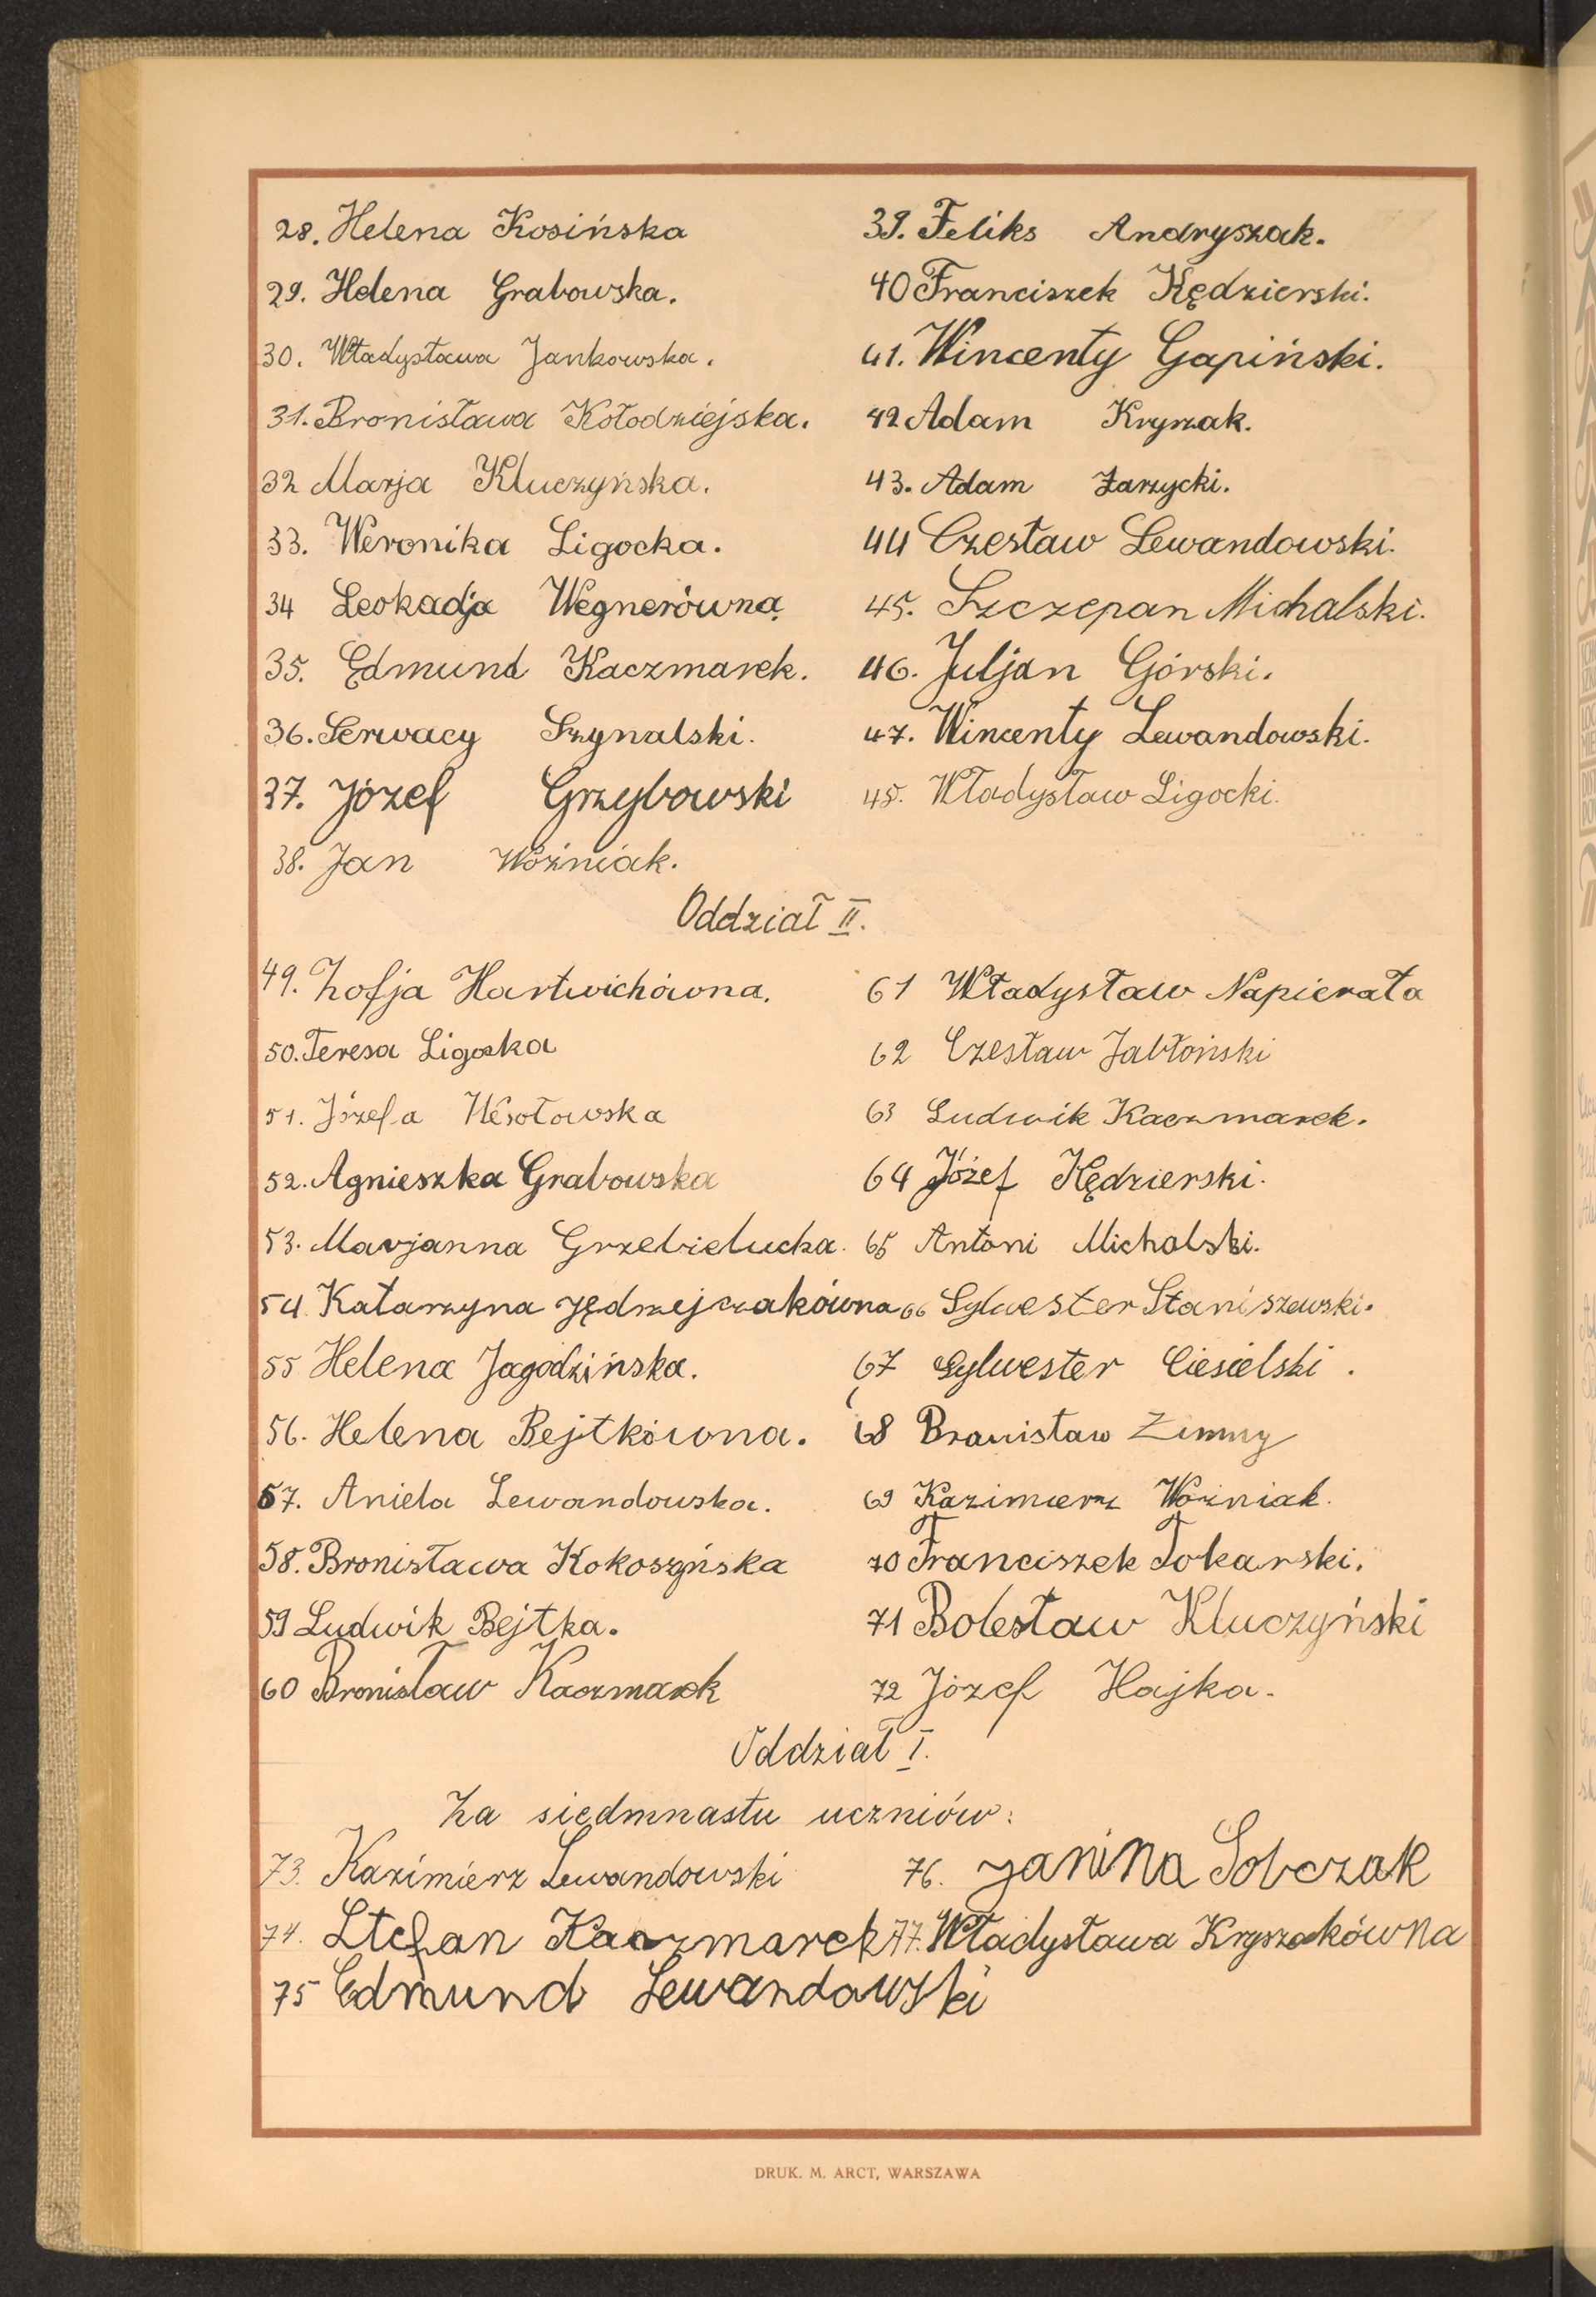 28. Helena Kosińska
29. Helena Grabowska.
30. Władysława Jankowska.
31. Bronisława Kołodziejska.
32 Marja Kluczyńska.
33. Weronika Ligocka.
34 Leokadja Wegnerówna.
35. Edmund Kaczmarek.
36. Serwacy Szynalski.
37. Józef Grzybowski
38. Jan Woźniak.
39. Feliks Andryszak.
40 Franciszek Kędzierski.
41. Wincenty Gapiński.
42 Adam Kryszak.
43. Adam Zarzycki.
44 Czesław Lewandowski.
45. Szczepan Michalski.
46. Juljan Górski.
47. Wincenty Lewandowski.
48. Władysław Ligocki.
Oddział II.
49. Zofja Hartwichówna.
50. Teresa Ligocka
51. Józefa Wesołowska
52. Agnieszka Grabowska
53. Marjanna Grzebielucka.
54 Katarzyna Jędrzejczakówna
55 Helena Jagodzińska.
56. Helena Bejtkówna.
57. Aniela Lewandowska.
58. Bronisława Kokoszyńska
59 Ludwik Bejtka.
60 Bronisław Kaczmarek
61 Władysław Napierała
62 Czesław Jabłoński
63 Ludwik Kaczmarek.
64 Józef Kędzierski.
65 Antoni Michalski.
66 Sylwester Staniszewski.
67 Sylwester Ciesielski.
68 Bronisław Zimny
69 Kazimierz Woźniak.
70 Franciszek Tokarski.
71 Bolesław Kluczyński
72 Józef Hajka.
Oddział I.
Za siedmnastu uczniów:
73. Kazimierz Lewandowski
74. Stefan Kaczmarek
75 Edmund Lewandowski
76. Janina Sobczak
77. Władysława Kryszakówna
DRUK. M. ARCT, WARSZAWA